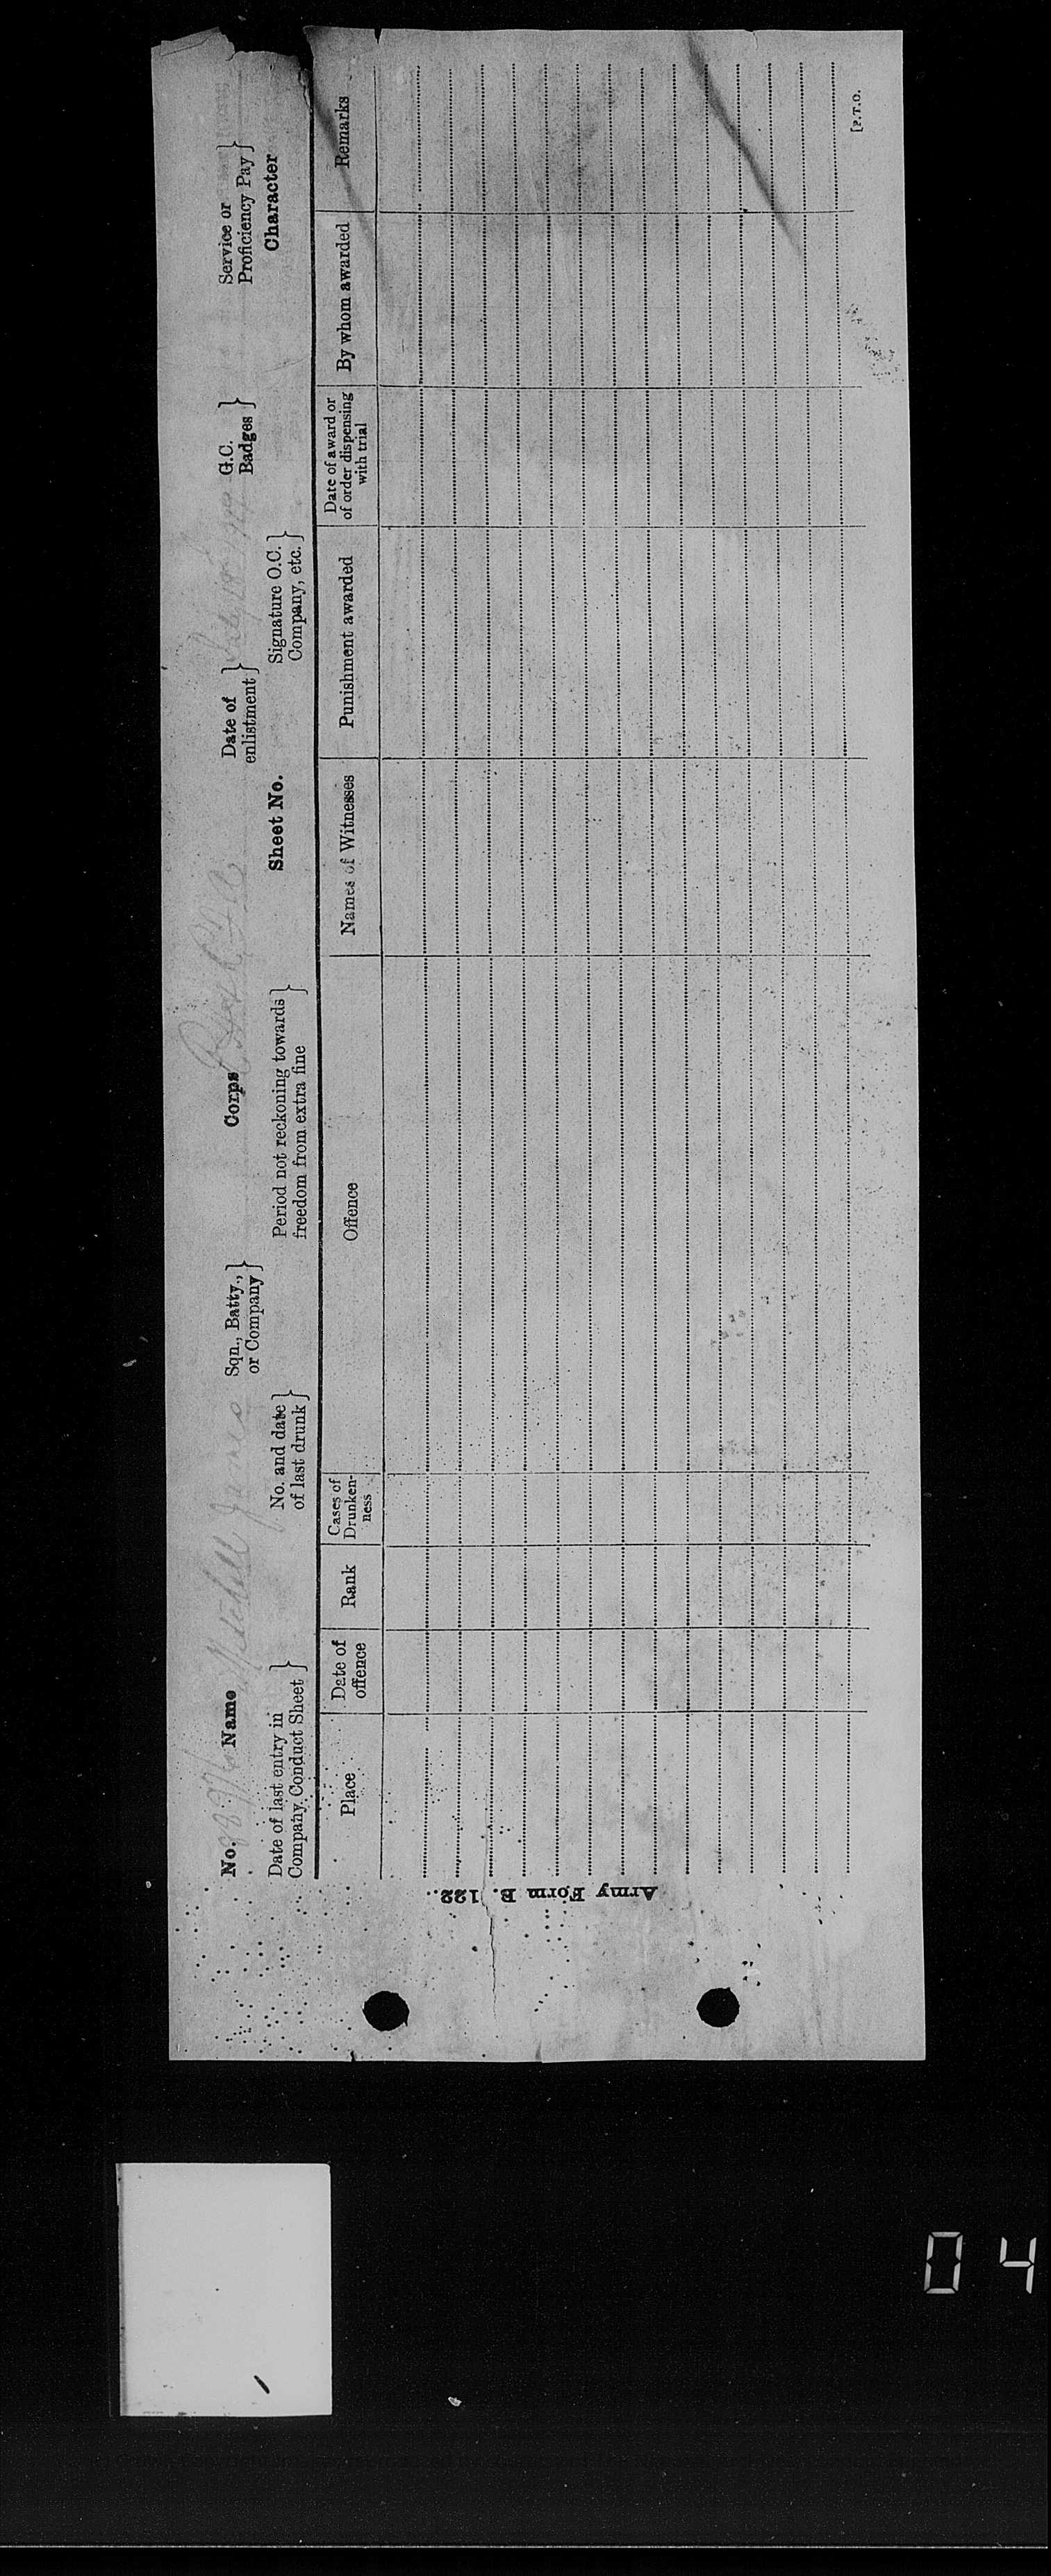 Army Form B. 122.
No. Name Mitchell James Sqn., Batty., or Company } Corps Date of enlistment } G.C. Badges } Service or Proficiency Pay }
Date of last entry in Company Conduct Sheet } No. and date of last drunk } Period not reckoning towards freedom from extra fine } Sheet No. Signature O.C. Company, etc. } Character
Place Date of offence Rank Cases of Drunken-ness Offence Names of Witnesses Punishment awarded Date of award or of order dispensing with trial By whom awarded Remarks
[P.T.O.
04